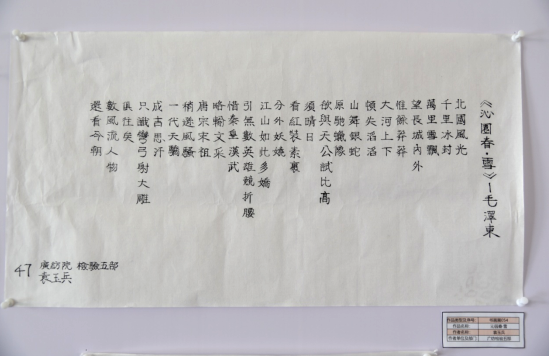 《沁園春·雪》—毛澤東
北國風光
千里冰封
萬里雪飄
望長城內外
惟餘莽莽
大河上下
頓失滔滔
山舞銀蛇
原馳蠟
欲與天公試比高
須晴日
看紅裝素裹
分外妖嬈
江山如此多嬌
引無數英雄競折腰
惜秦皇漢武
略輸文采
唐宗宋祖
稍遜風騷
一代天驕
成吉思汗
只識彎弓射大雕
俱往矣
數風流人物
還看今朝
47 廣紡院 檢驗五部
袁玉兵
作品名称
作者名称